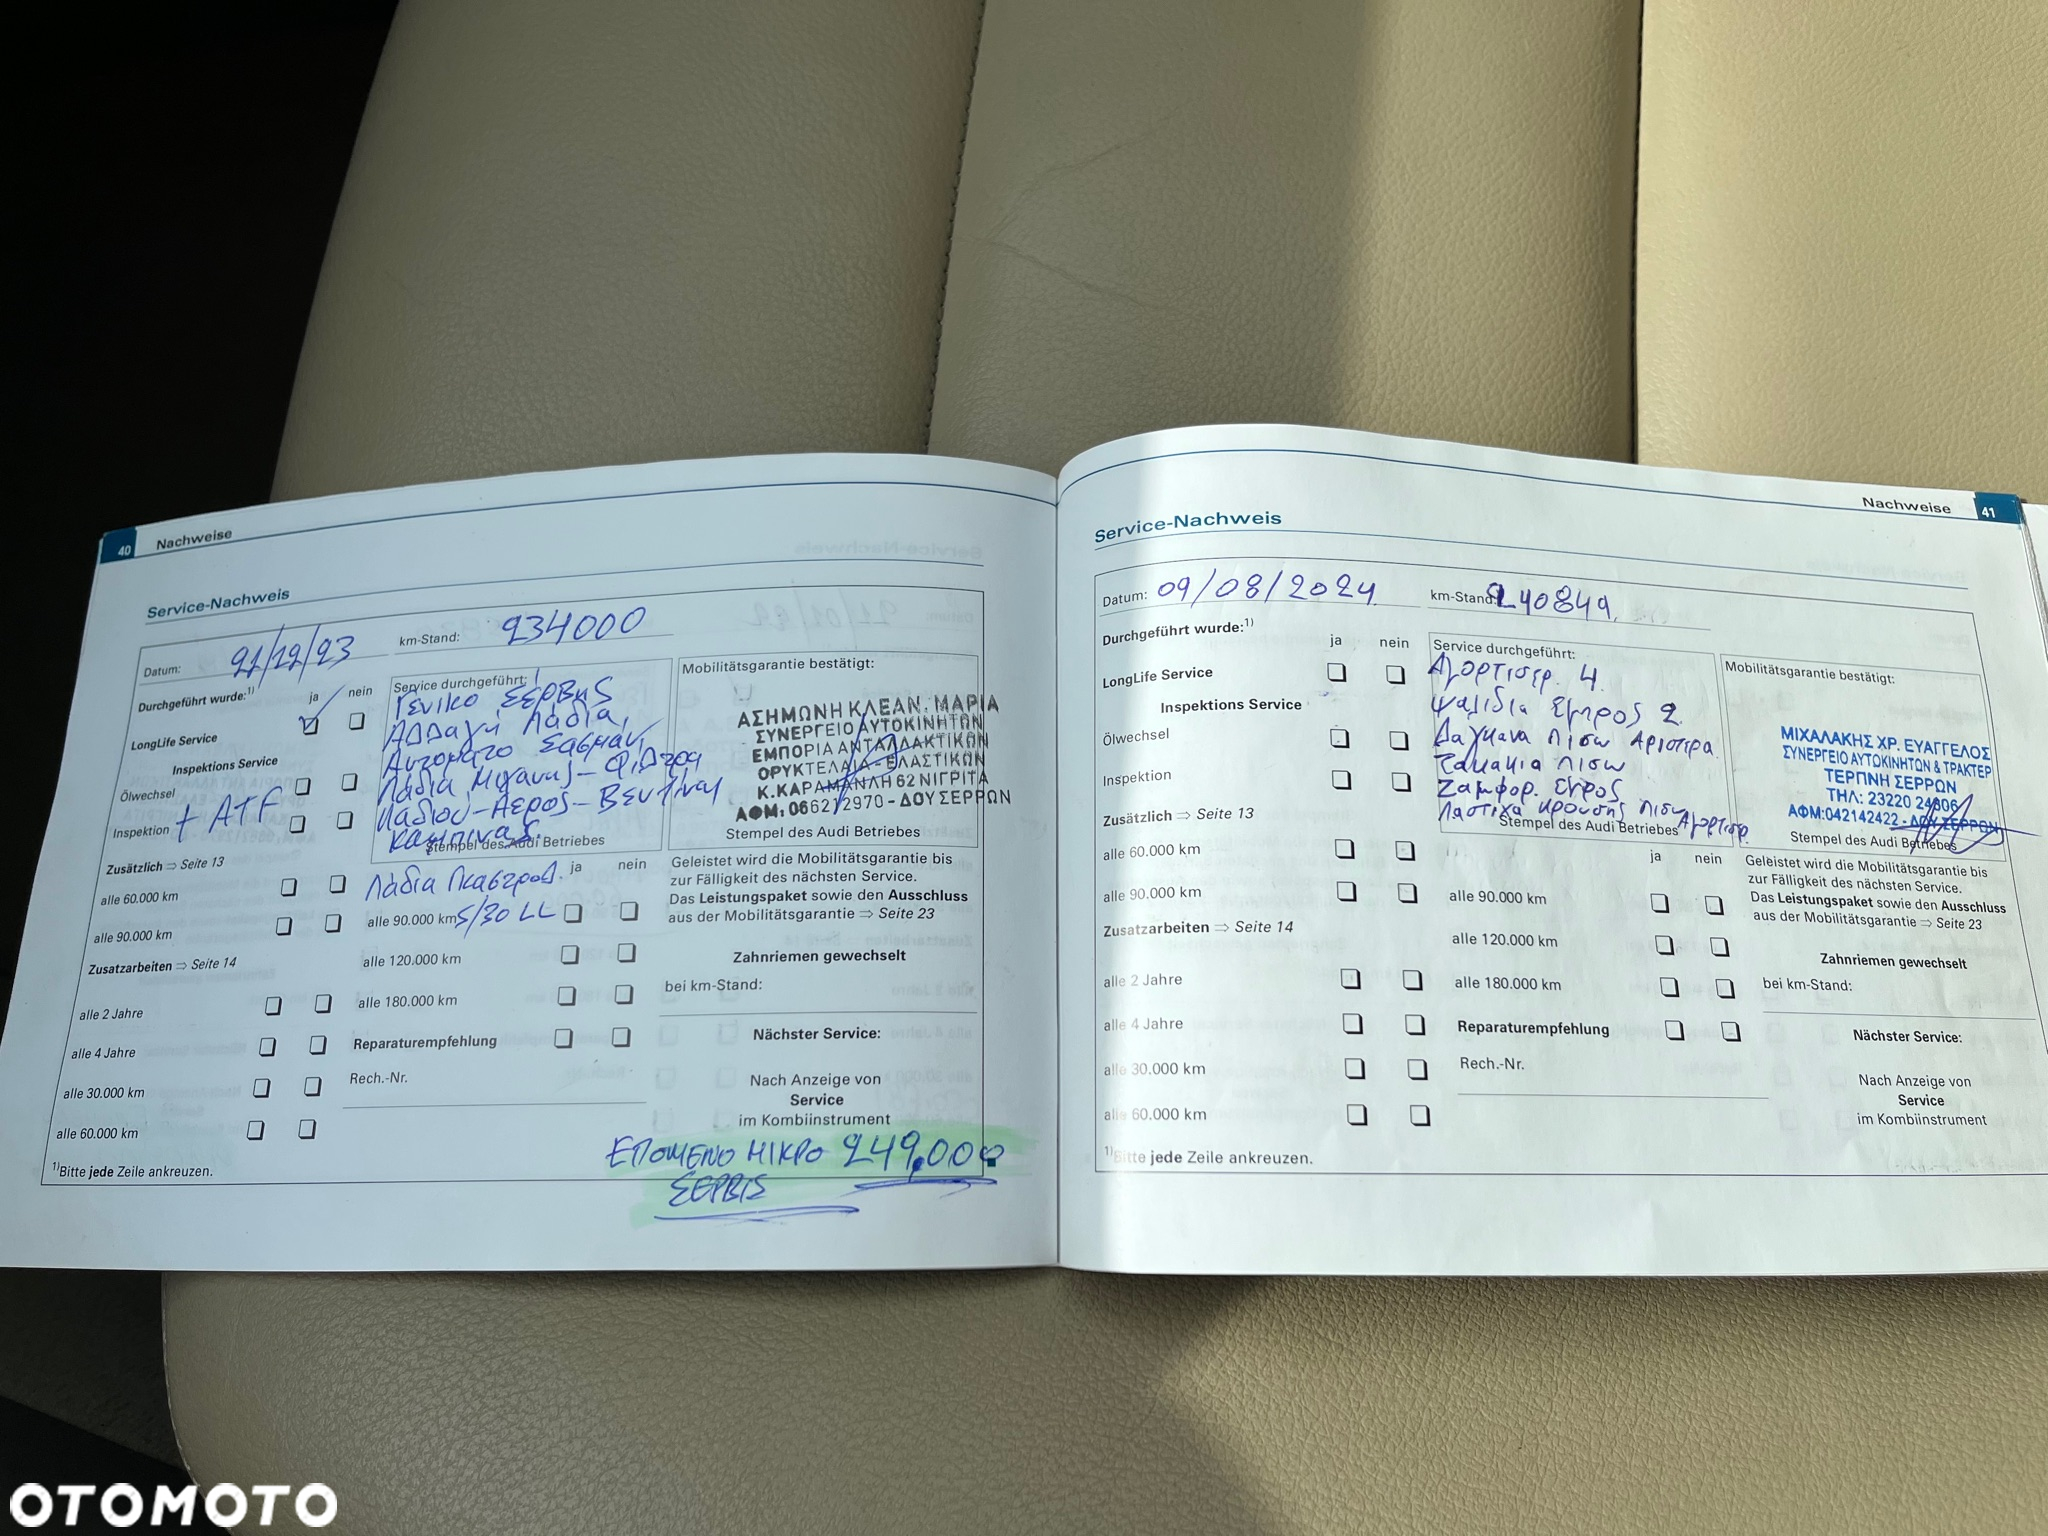 40 Nachweise
Service-Nachweis
Datum: 21/12/23 km-Stand: 234000
Durchgeführt wurde:1) ja nein
LongLife Service
Inspektions Service
Ölwechsel
Inspektion + ATF
Zusätzlich ⇒ Seite 13
alle 60.000 km
alle 90.000 km
Zusatzarbeiten ⇒ Seite 14
alle 2 Jahre
alle 4 Jahre
alle 30.000 km
alle 60.000 km
1)Bitte jede Zeile ankreuzen.
Service durchgeführt:
Γενικο Σερβης
Αλλαγή Λάδια,
Αυτοματο Σασμαν,
Λάδια Μηχανης - Φιλτρα
Λαδιου - Αερος - Βενζίνης
Καμπινας.
Stempel des Audi Betriebes
Λάδια Καστρολ. ja nein
alle 90.000 km 5/30 LL
alle 120.000 km
alle 180.000 km
Reparaturempfehlung
Rech.-Nr.
Mobilitätsgarantie bestätigt:
ΑΣΗΜΩΝΗ ΚΛΕΑΝ. ΜΑΡΙΑ
ΣΥΝΕΡΓΕΙΟ ΑΥΤΟΚΙΝΗΤΩΝ
ΕΜΠΟΡΙΑ ΑΝΤΑΛΛΑΚΤΙΚΩΝ
ΟΡΥΚΤΕΛΑΙΑ - ΕΛΑΣΤΙΚΩΝ
Κ.ΚΑΡΑΜΑΝΛΗ 62 ΝΙΓΡΙΤΑ
ΑΦΜ: 066212970 - ΔΟΥ ΣΕΡΡΩΝ
Stempel des Audi Betriebes
Geleistet wird die Mobilitätsgarantie bis
zur Fälligkeit des nächsten Service.
Das Leistungspaket sowie den Ausschluss
aus der Mobilitätsgarantie ⇒ Seite 23
Zahnriemen gewechselt
bei km-Stand:
Nächster Service:
Nach Anzeige von
Service
im Kombiinstrument
ΕΠΟΜΕΝΟ ΜΙΚΡΟ 249.000
ΣΕΡΒΙΣ
Nachweise 41
Service-Nachweis
Datum: 09/08/2024 km-Stand: 240849
Durchgeführt wurde:1) ja nein
LongLife Service
Inspektions Service
Ölwechsel
Inspektion
Zusätzlich ⇒ Seite 13
alle 60.000 km
alle 90.000 km
Zusatzarbeiten ⇒ Seite 14
alle 2 Jahre
alle 4 Jahre
alle 30.000 km
alle 60.000 km
1)Bitte jede Zeile ankreuzen.
Service durchgeführt:
Αμορτισερ. 4
Ψαλιδια Εμπρος 2
Δαγκανα πισω Αριστερα
Τακακια πισω
Εμπρος
Λαστιχα κρουσης πισω Αμορτισερ
Stempel des Audi Betriebes
ja nein
alle 90.000 km
alle 120.000 km
alle 180.000 km
Reparaturempfehlung
Rech.-Nr.
Mobilitätsgarantie bestätigt:
ΜΙΧΑΛΑΚΗΣ ΧΡ. ΕΥΑΓΓΕΛΟΣ
ΣΥΝΕΡΓΕΙΟ ΑΥΤΟΚΙΝΗΤΩΝ & ΤΡΑΚΤΕΡ
ΤΕΡΠΝΗ ΣΕΡΡΩΝ
ΤΗΛ: 23220 24806
ΑΦΜ:042142422 - ΔΟΥ ΣΕΡΡΩΝ
Stempel des Audi Betriebes
Geleistet wird die Mobilitätsgarantie bis
zur Fälligkeit des nächsten Service.
Das Leistungspaket sowie den Ausschluss
aus der Mobilitätsgarantie ⇒ Seite 23
Zahnriemen gewechselt
bei km-Stand:
Nächster Service:
Nach Anzeige von
Service
im Kombiinstrument
OTOMOTO